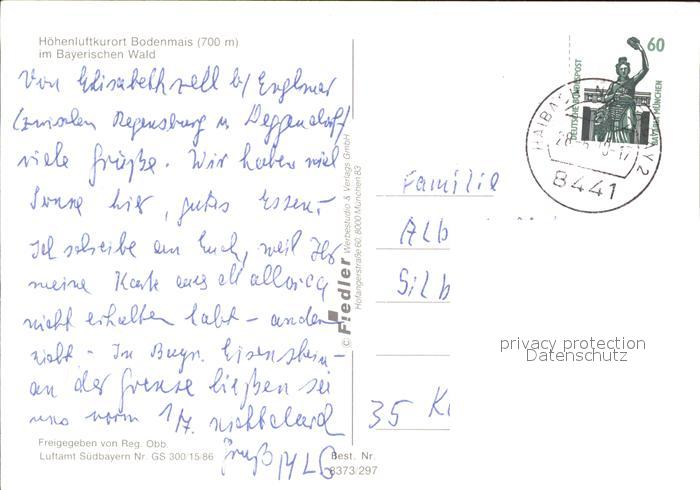 Höhenluftkurort Bodenmais (700 m)
im Bayerischen Wald
Von Elisabethszell b/ Englmar
(zwischen Regensburg u Deggendorf)
viele Grüße. Wir haben viel
Sonne hier, gutes Essen.-
Ich schreibe an Euch, weil Ihr
meine Karte aus Mallorca
nicht erhalten habt - andere
nicht - In Bayr. Eisenstein -
an der Grenze ließen sie
uns vorm 1/7. nicht durch
Gruß
Freigegeben von Reg. Obb.
Luftamt Südbayern Nr. GS 300/15-86
Best. Nr.
8373/297
© Fiedler Werbestudio & Verlags GmbH
Hofangerstraße 60, 8000 München 83
60
DEUTSCHE BUNDESPOST
BAVARIA MÜNCHEN
8441
Familie
Alb
Silb
35 K
privacy protection
Datenschutz